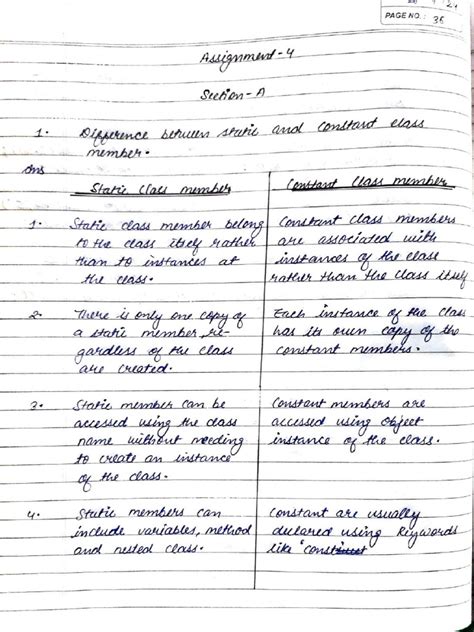 PAGE NO.: 36
Assignment-4
Section-A
1. Difference between static and constant class
member.
Ans
Static Class member
Constant Class member
1. Static class member belong
to the class itself rather
than to instances at
the class.
Constant class members
are associated with
instances of the class
rather than the class itself
2. There is only one copy of
a static member, re-
gardless of the class
are created.
Each instance of the class
has its own copy of the
constant members.
3. Static member can be
accessed using the class
name without needing
to create an instance
of the class.
Constant members are
accessed using object
instance of the class.
4. Static members can
include variables, method
and nested class.
Constant are usually
declared using keywords
like 'const